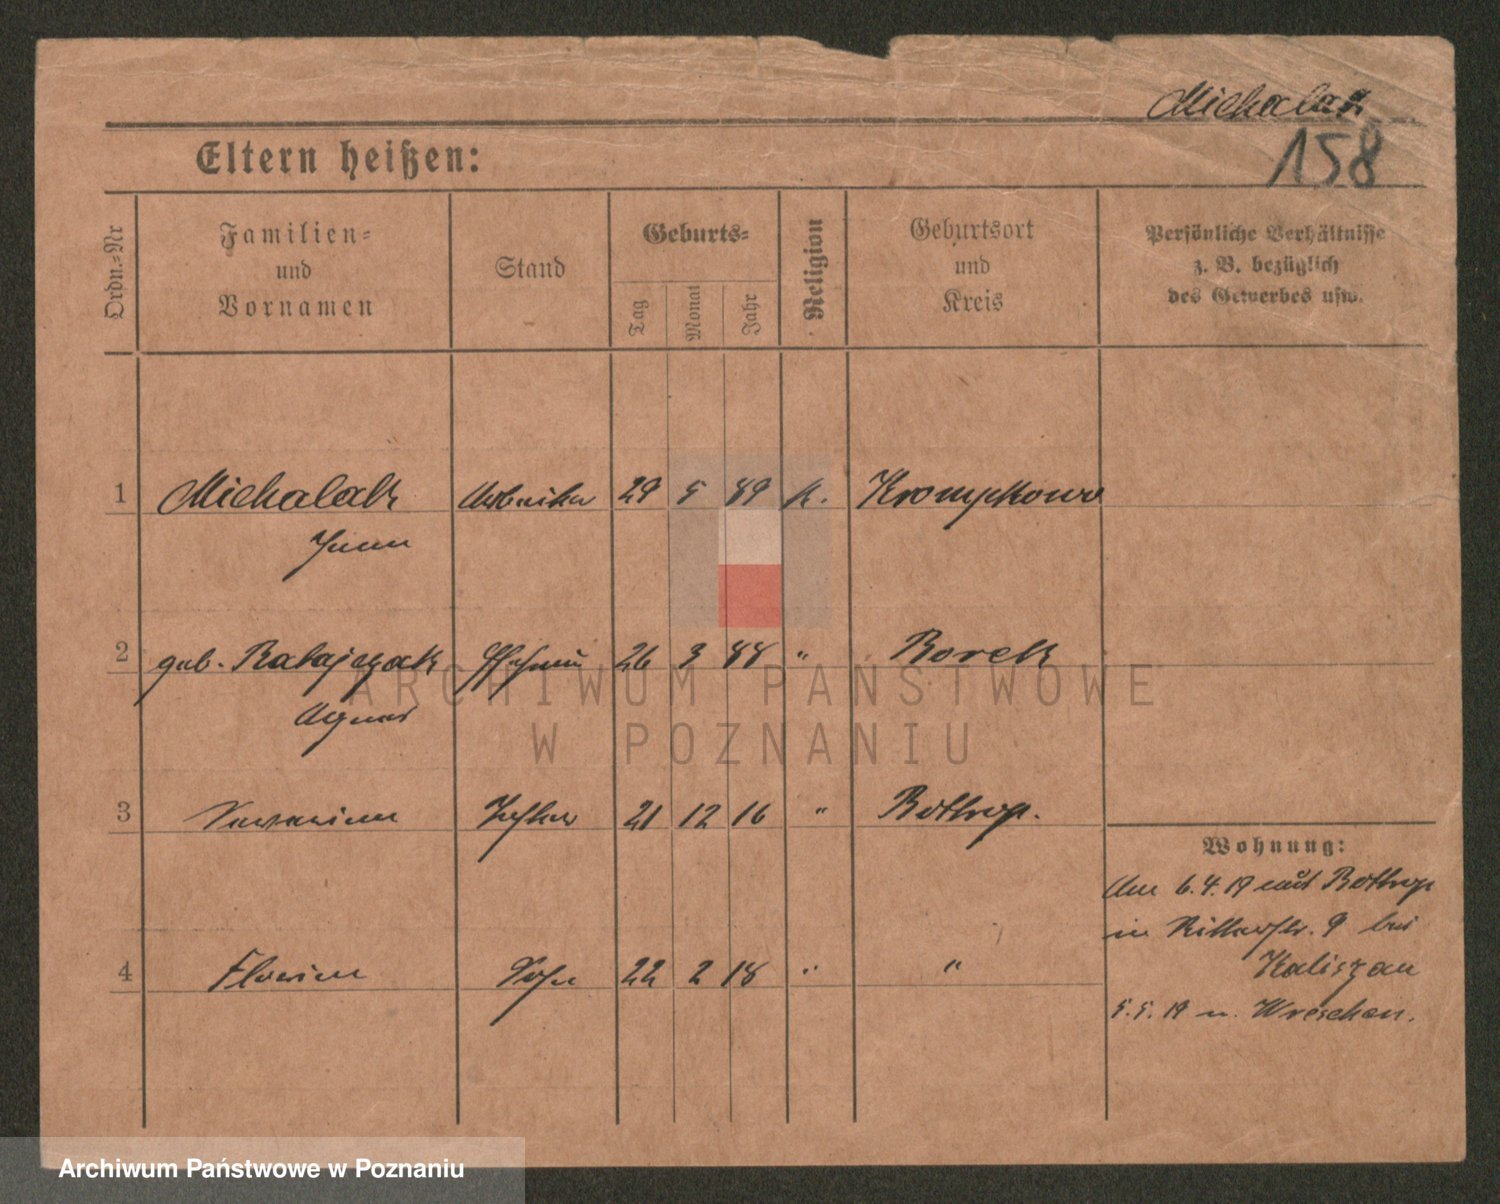 Michalak
158
Eltern heißen:
Ordn.-Nr
Familien-
und
Vornamen
Stand
Geburts-
Tag
Monat
Jahr
Religion
Geburtsort
und
Kreis
Persönliche Verhältnisse
z. B. bezüglich
des Gewerbes usw.
1 Michalak Arbeiter 29 5 89 k.
2 geb. Ratajczak Ehefrau 26 3 88 " Borek
Agnes
3 Tochter 21 12 16 " Bottrop.
4 Florian Sohn 22 2 18 " "
Wohnung:
Am 6.4.19 aus Bottrop
in Ritterstr. 9 bei
Kaliszan
5.5.19 n. Wreschen.
ARCHIWUM PAŃSTWOWE
W POZNANIU
Archiwum Państwowe w Poznaniu